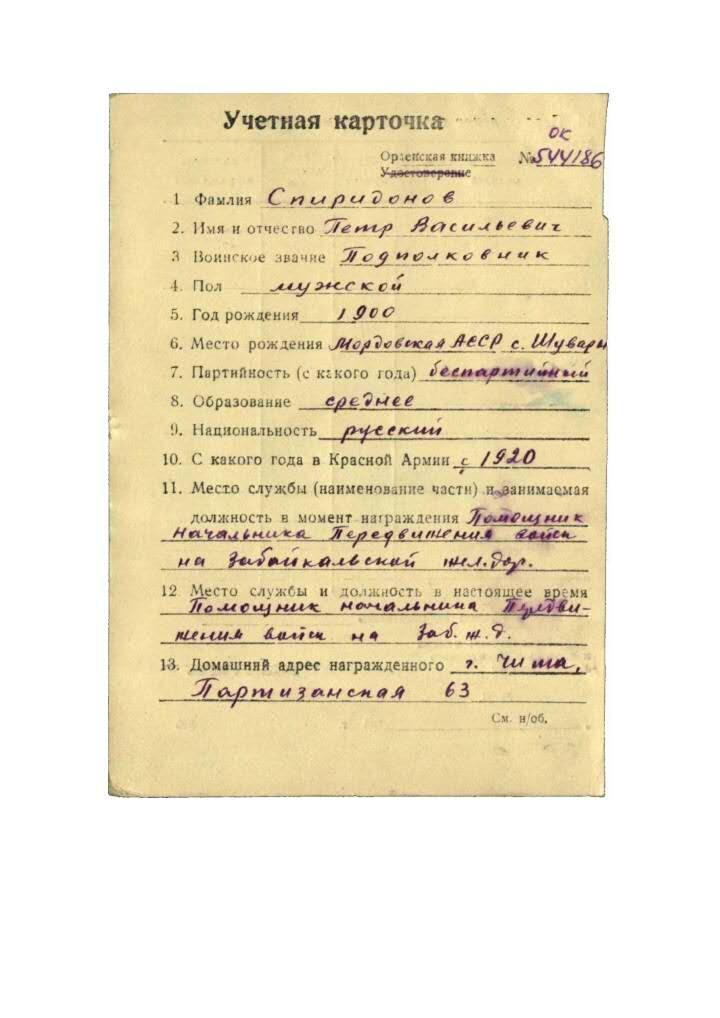 Учетная карточка
ок
Орденская книжка № 544186
Удостоверение
1 Фамлия Спиридонов
2. Имя и отчество Петр Васильевич
3 Воинское звание Подполковник
4. Пол мужской
5. Год рождения 1900
6. Место рождения Мордовская АССР с. Шувары
7. Партийность (с какого года) беспартийный
8. Образование среднее
9. Национальность русский
10. С какого года в Красной Армии с 1920
11. Место службы (наименование части) и занимаемая
должность в момент награждения Помощник
Начальника Передвижения войск
на Забайкальской жел.дор.
12 Место службы и должность в настоящее время
Помощник начальника Передви-
жения войск на Заб. ж.д.
13. Домашний адрес награжденного г. Чита,
Партизанская 63
См. н/об.